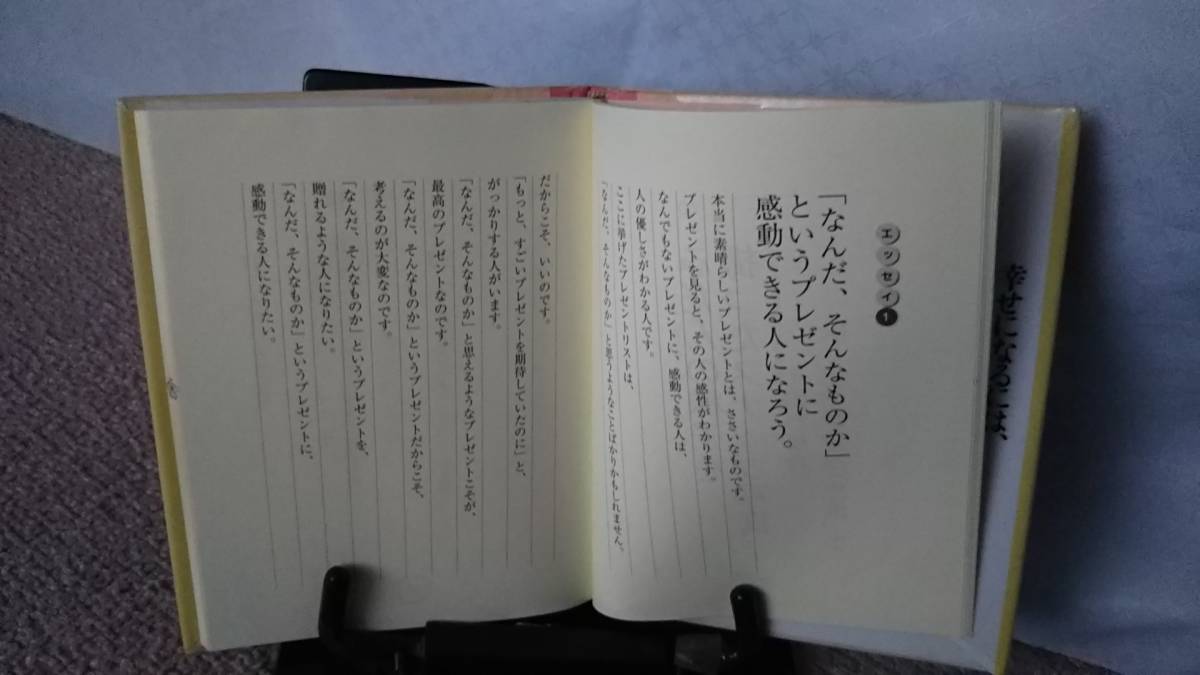 幸せになるには、
エッセイ1
「なんだ、そんなものか」
というプレゼントに
感動できる人になろう。
本当に素晴らしいプレゼントとは、ささいなものです。
プレゼントを見ると、その人の感性がわかります。
なんでもないプレゼントに、感動できる人は、
人の優しさがわかる人です。
ここに挙げたプレゼントリストは、
「なんだ、そんなものか」と思うようなことばかりかもしれません。
だからこそ、いいのです。
「もっと、すごいプレゼントを期待していたのに」と、
がっかりする人がいます。
「なんだ、そんなものか」と思えるようなプレゼントこそが、
最高のプレゼントなのです。
「なんだ、そんなものか」というプレゼントだからこそ、
考えるのが大変なのです。
「なんだ、そんなものか」というプレゼントを、
贈れるような人になりたい。
「なんだ、そんなものか」というプレゼントに、
感動できる人になりたい。